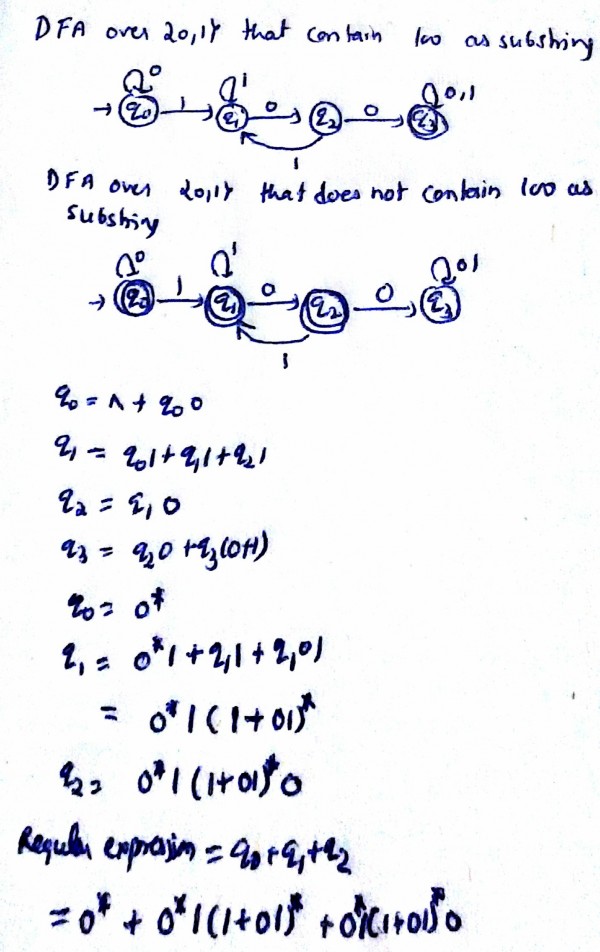 DFA over {0,1} that contain 100 as substring
0 1 0,1
→ q0 1 q1 0 q2 0 q3
1
DFA over {0,1} that does not contain 100 as
substring
0 1 01
→ q0 1 q1 0 q2 0 q3
1
q0 = ∧ + q0 0
q1 = q0 1 + q1 1 + q2 1
q2 = q1 0
q3 = q2 0 + q3 (0+1)
q0 = 0*
q1 = 0* 1 + q1 1 + q1 01
= 0* 1 (1+01)*
q2 = 0* 1 (1+01)* 0
Regular expression = q0 + q1 + q2
= 0* + 0* 1 (1+01)* + 0* 1 (1+01)* 0